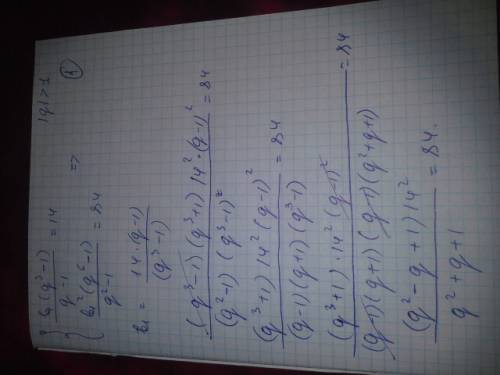 { b₁(q³-1)/(q-1) = 14 |q|>1
{ b₁²(q⁶-1)/(q²-1) = 84 =>
b₁ = 14·(q-1)/(q³-1)
(q³-1)(q³+1) 14²·(q-1)²/((q²-1)(q³-1)²) = 84
(q³+1) 14²(q-1)²/((q-1)(q+1)(q³-1)) = 84
(q³+1)·14²(q-1)²/((q-1)(q+1)(q-1)(q²+q+1)) = 84
(q²-q+1)14²/(q²+q+1) = 84.